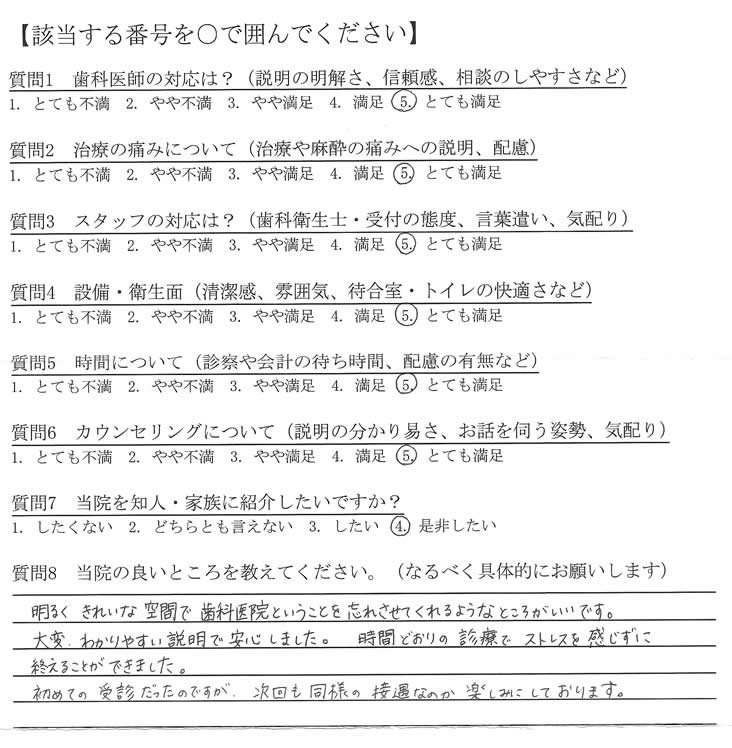 【該当する番号を○で囲んでください】
質問1　歯科医師の対応は？（説明の明解さ、信頼感、相談のしやすさなど）
1. とても不満　2. やや不満　3. やや満足　4. 満足　5. とても満足
質問2　治療の痛みについて（治療や麻酔の痛みへの説明、配慮）
1. とても不満　2. やや不満　3. やや満足　4. 満足　5. とても満足
質問3　スタッフの対応は？（歯科衛生士・受付の態度、言葉遣い、気配り）
1. とても不満　2. やや不満　3. やや満足　4. 満足　5. とても満足
質問4　設備・衛生面（清潔感、雰囲気、待合室・トイレの快適さなど）
1. とても不満　2. やや不満　3. やや満足　4. 満足　5. とても満足
質問5　時間について（診察や会計の待ち時間、配慮の有無など）
1. とても不満　2. やや不満　3. やや満足　4. 満足　5. とても満足
質問6　カウンセリングについて（説明の分かり易さ、お話を伺う姿勢、気配り）
1. とても不満　2. やや不満　3. やや満足　4. 満足　5. とても満足
質問7　当院を知人・家族に紹介したいですか？
1. したくない　2. どちらとも言えない　3. したい　4. 是非したい
質問8　当院の良いところを教えてください。（なるべく具体的にお願いします）
明るく きれいな 空間で 歯科医院ということを忘れさせてくれるようなところがいいです。
大変、わかりやすい説明で安心しました。　時間どおりの 診療で ストレスを 感じずに
終えることができました。
初めての 受診だったのですが、次回も 同様の 接遇なのか 楽しみにしております。